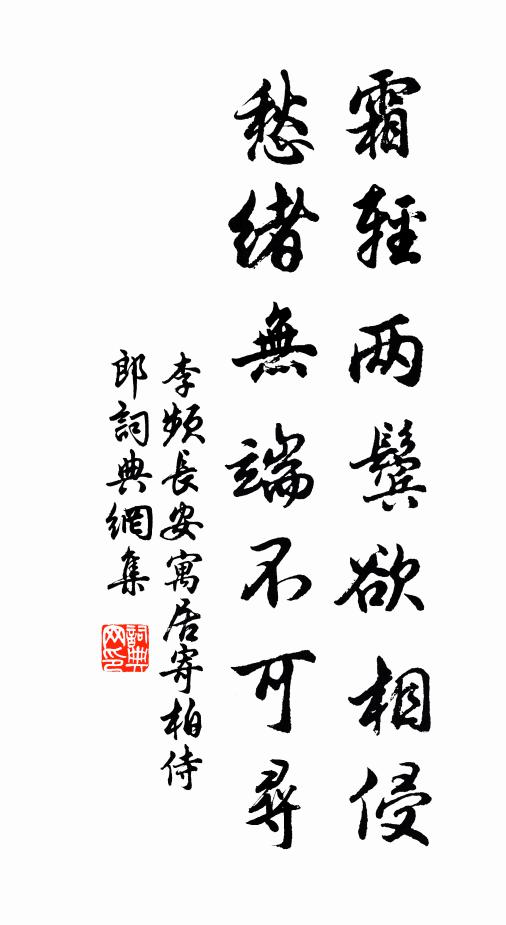 霜輕两鬓欲相侵
愁緒無端不可尋
李頻長安寓居寄柏侍
郎詞典網集
詞典
网印